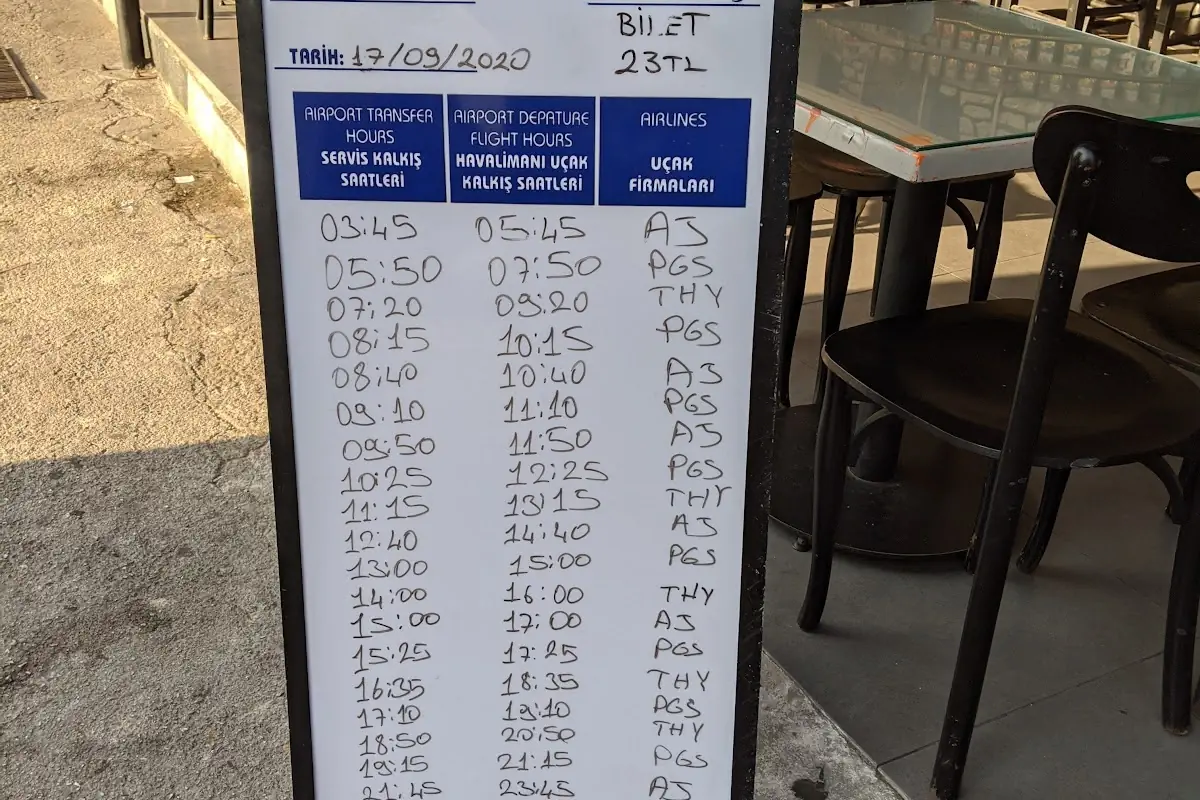 BİLET
TARİH: 17/09/2020 23TL
AIRPORT TRANSFER HOURS SERVİS KALKIŞ SAATLERİ
AIRPORT DEPATURE FLIGHT HOURS HAVALİMANI UÇAK KALKIŞ SAATLERİ
AIRLINES UÇAK FİRMALARI
03:45 05:45 AJ
05:50 07:50 PGS
07:20 09:20 THY
08:15 10:15 PGS
08:40 10:40 AJ
09:10 11:10 PGS
09:50 11:50 AJ
10:25 12:25 PGS
11:15 13:15 THY
12:40 14:40 AJ
13:00 15:00 PGS
14:00 16:00 THY
15:00 17:00 AJ
15:25 17:25 PGS
16:35 18:35 THY
17:10 19:10 PGS
18:50 20:50 THY
19:15 21:15 PGS
21:45 23:45 AJ